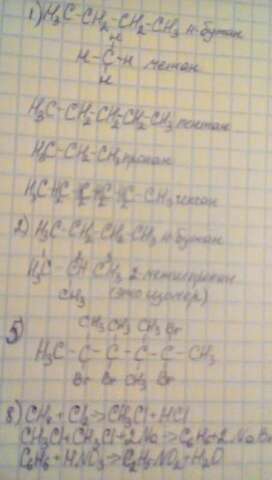 1) H3C-CH2-CH2-CH3 н-бутан
H
H-C-H метан
H
H3C-CH2-CH2-CH2-CH3 пентан
H3C-CH2-CH3 пропан
CH3 гексан
2) H3C-CH2-CH2-CH3 н-бутан
H3C-CH-CH3 2-метилпропан
CH3 (это изомер)
5) CH3 CH3 CH3 Br
H3C-C-C-C-C-CH3
Br Br CH3 Br
8) CH4+Cl2→CH3Cl+HCl
CH3Cl+CH3Cl+2Na→C2H6+2Na
C2H6+HNO3→C2H5NO2+H2O